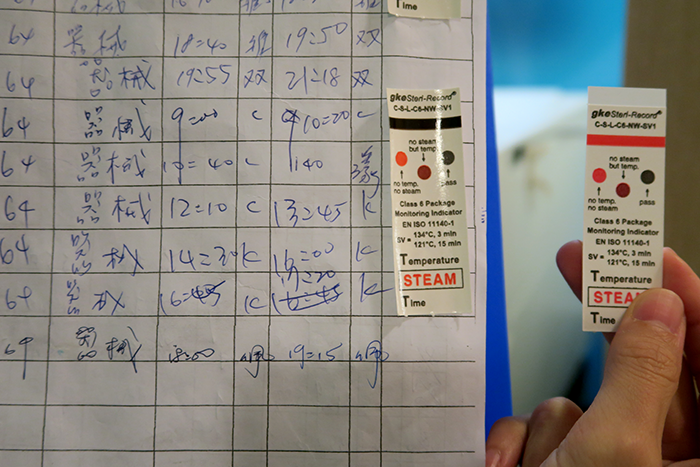 Time
64 器械 18=40 班 19=50 双
64 器械 19=55 双 21=18 双
64 器械 9=00 C 10=20 C
64 器械 10=40 C 1140
64 器械 12=10 C 13=45 K
64 器械 14=30 K
64 器械 K K
64 器械 19=15
gke Steri-Record®
C-S-L-C6-NW-SV1
no steam
but temp.
no temp.
no steam
pass
Class 6 Package
Monitoring Indicator
EN ISO 11140-1
SV = 134°C, 3 min
121°C, 15 min
Temperature
STEAM
Time
gke Steri-Record®
C-S-L-C6-NW-SV1
no steam
but temp.
no temp.
no steam
pass
Class 6 Package
Monitoring Indicator
EN ISO 11140-1
SV = 134°C, 3 min
121°C, 15 min
Temperature
STEAM
Time